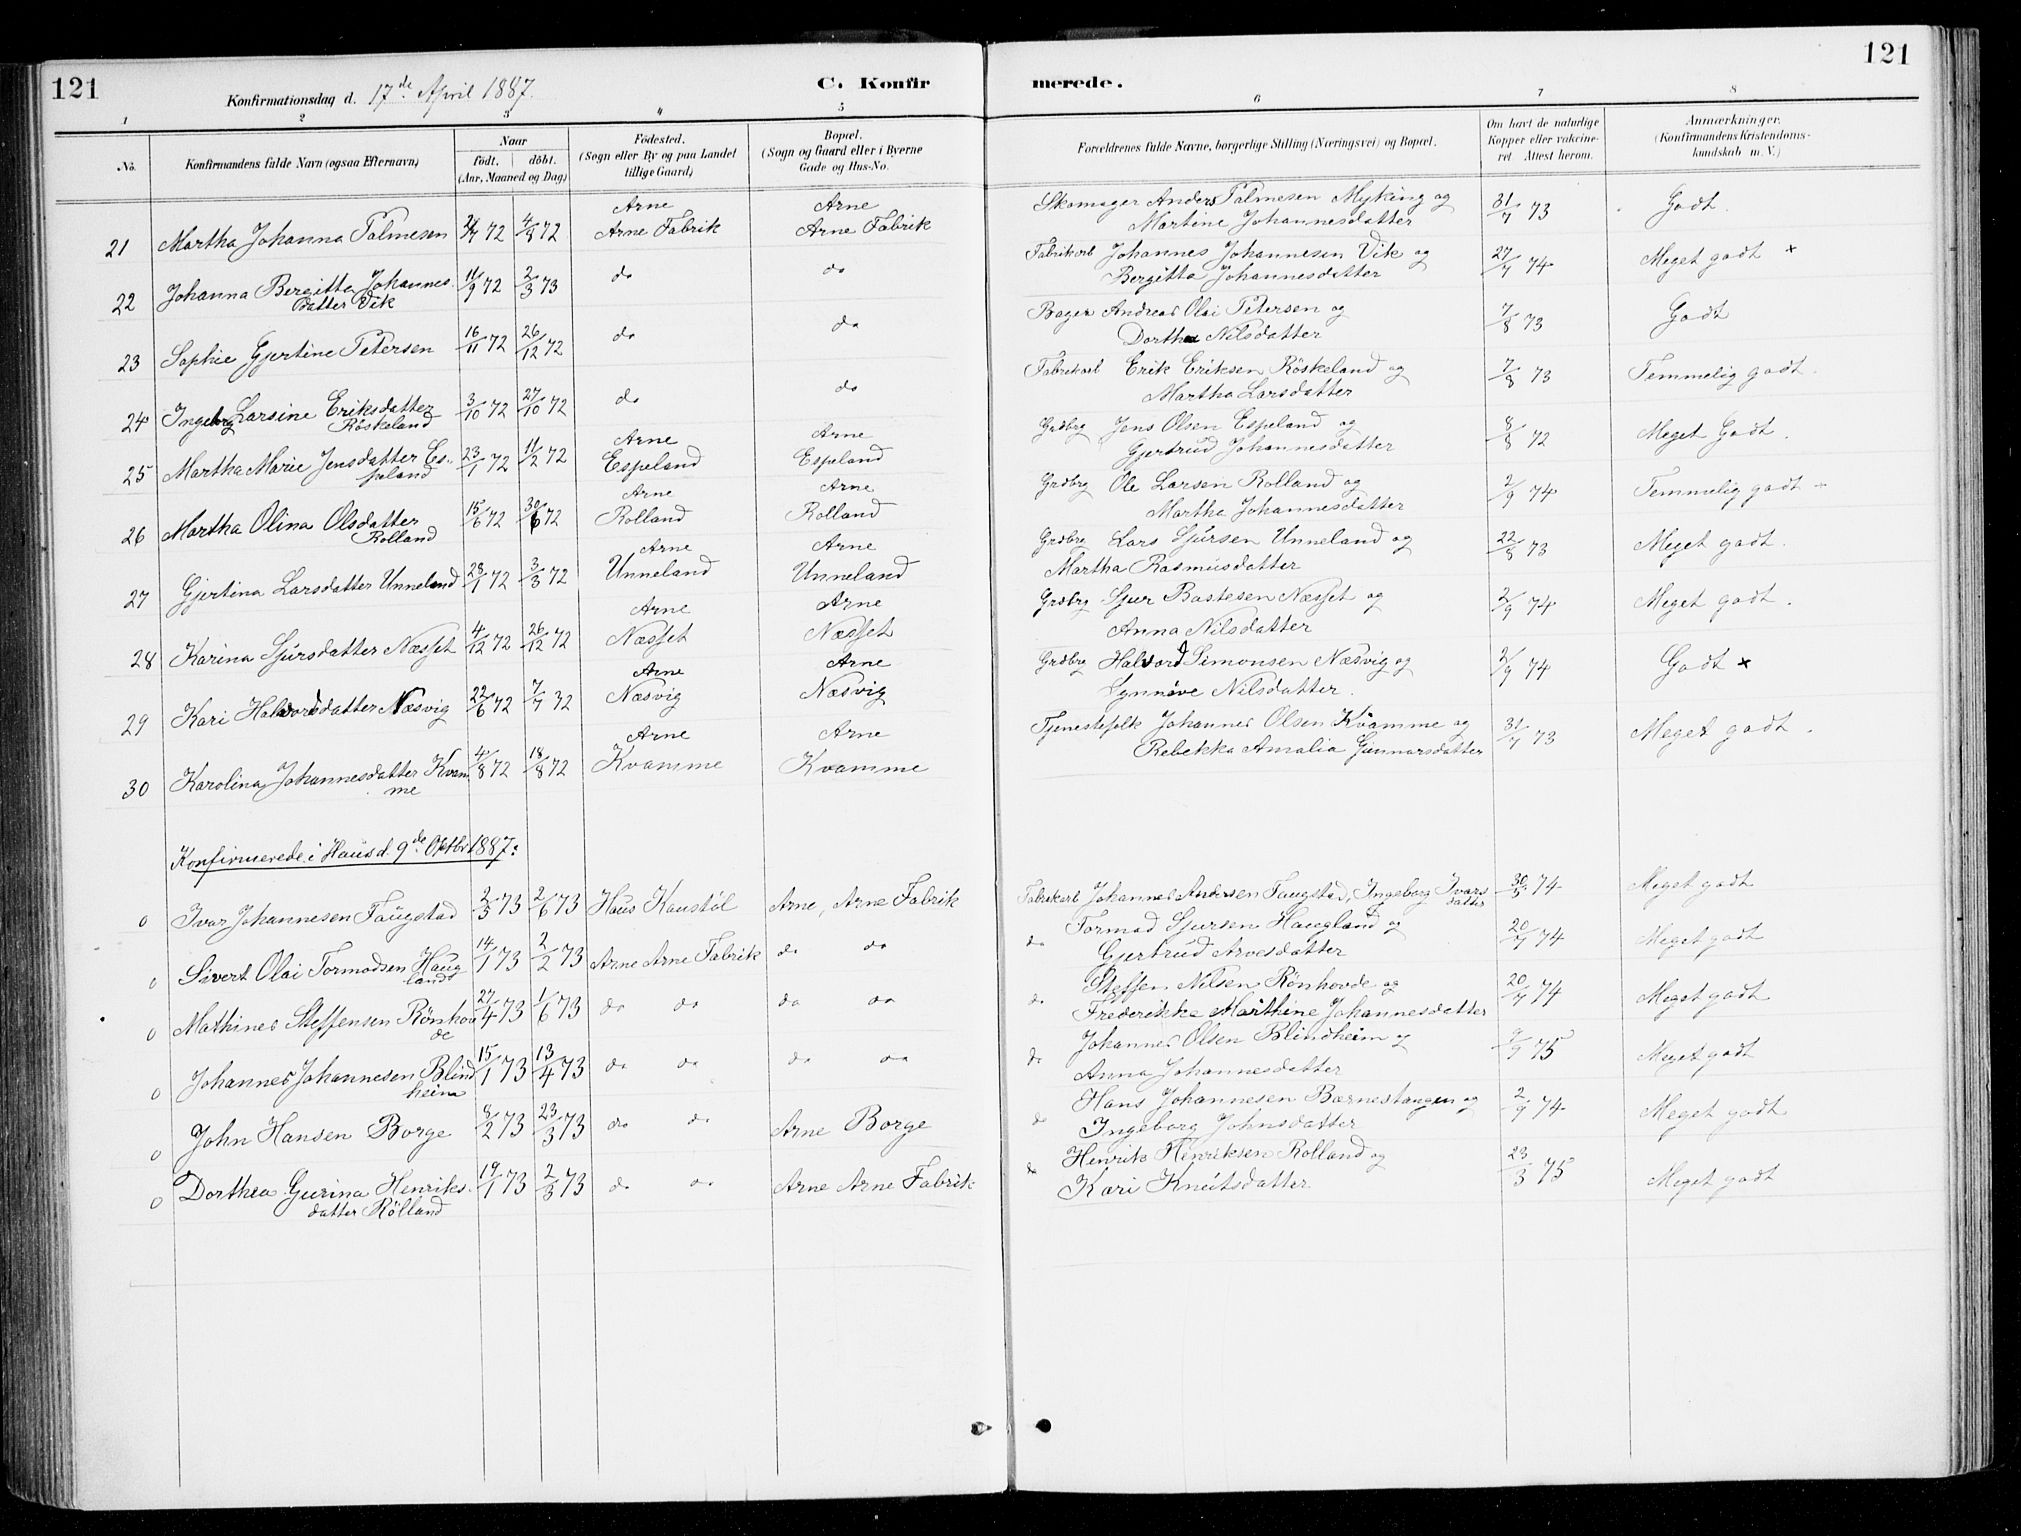 121
Konfirmationsdag d. 17de April 1887.
C. Konfirmerede.
121
1 2 3 4 5 6 7 8
No. Konfirmandens fulde Navn (ogsaa Efternavn) Naar födt. döbt. (Aar, Maaned og Dag) Födested. (Sogn eller By og paa Landet tillige Gaard) Bopæl. (Sogn og Gaard eller i Byerne Gade og Hus-No. Forældrenes fulde Navne, borgerlige Stilling (Næringsvei) og Bopæl. Om havt de naturlige Kopper eller vakcineret Attest herom. Anmærkninger. (Konfirmandens Kristendomskundskab m. V.)
21 Martha Johanna Palmesen 72 4/8 72 Arne Arne Fabrik Arne Arne Fabrik Skomager Anders Palmesen Myking og Martine Johannesdatter 31/7 73 Godt.
22 Johanna Bergitta Johannesdatter Vik 11/9 72 2/3 73 do do Fabrikarb Johannes Johannesen Vik og Bergitta Johannesdatter 27/7 74 Meget godt +
23 Sophie Gjertine Petersen 16/11 72 26/12 72 do do Bager Andreas Olai Petersen og Dorthea Nilsdatter 7/8 73 Godt
24 Ingeborg Larsine Eriksdatter Röskeland 3/10 72 27/10 72 do do Fabrikarb Erik Eriksen Röskeland og Martha Larsdatter 7/8 73 Temmelig godt.
25 Martha Marie Jensdatter Espeland 23/1 72 11/2 72 Arne Espeland Arne Espeland Grdbrg Jens Olsen Espeland og Gjertrud Johannesdatter 8/8 72 Meget Godt.
26 Martha Olina Olsdatter Rolland 15/6 72 30/6 72 Arne Rolland Arne Rolland Grdbrg Ole Larsen Rolland og Martha Johannesdatter 2/9 74 Temmelig godt
27 Gjertina Larsdatter Unneland 28/1 72 3/3 72 Arne Unneland Arne Unneland Grdbrg Lars Sjursen Unneland og Martha Rasmusdatter 22/8 73 Meget godt.
28 Karina Sjursdatter Næsset 4/12 72 26/12 72 Arne Næsset Arne Næsset Grdbrg Sjur Bastesen Næsset og Anna Nilsdatter 2/9 74 Meget godt.
29 Kari Halvordsdatter Næsvig 22/6 72 7/7 32 Arne Næsvig Arne Næsvig Grdbrg Halvord Simonsen Næsvig og Synnöve Nilsdatter. 2/9 74 Godt +
30 Karolina Johannesdatter Kvamme 4/8 72 18/8 72 Arne Kvamme Arne Kvamme Tjenestefolk Johannes Olsen Kvamme og Rebekka Amalia Gunnarsdatter 31/7 73 Meget godt.
Konfirmerede i Haus d. 9de Oktbr 1887:
0 Ivar Johannesen Faugstad 2/5 73 2/6 73 Haus Kaustöl Arne, Arne Fabrik Fabrikarb Johannes Andersen Faugstad, Ingeborg Ivarsdatter 30/5 74 Meget godt
0 Sivert Olai Tormodsen Haugland 14/1 73 2/2 73 Arne Arne Fabrik do do do Tormod Sjursen Haugland og Gjertrud Arvesdatter 20/7 74 Meget godt
0 Mathines Steffensen Rönhovde 27/4 73 1/6 73 do do do do do Steffen Nilsen Rönhovde og Frederikke Marthine Johannesdatter 20/7 74 Meget godt
0 Johannes Johannesen Blindheim 15/1 73 13/4 73 do do do do do Johannes Olsen Blindheim og Anna Johannesdatter 9/9 75 Meget godt
0 John Hansen Borge 8/2 73 23/3 73 do do Arne Borge do Hans Johannesen Bærnestangen og Ingeborg Johnsdatter 2/9 74 Meget godt
0 Dorthea Gurina Henriksdatter Rölland 19/1 73 2/3 73 do do Arne Arne Fabrik do Henrik Henriksen Rolland og Kari Knutsdatter 23/3 75 Meget godt